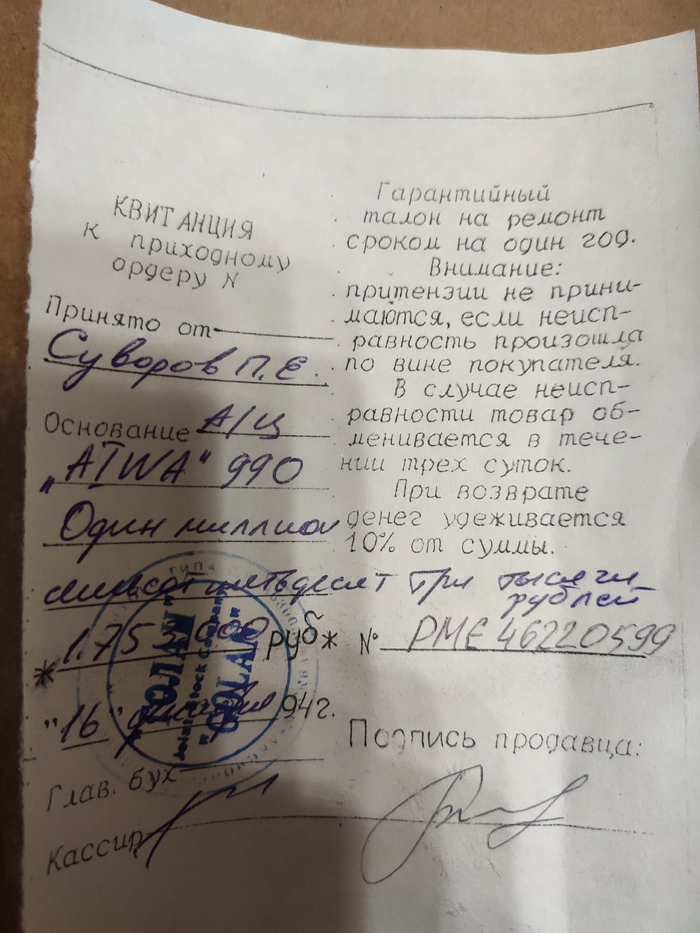 КВИТАНЦИЯ
к приходному
ордеру N
Принято от
Суворов П.Е.
Основание А/Ц
„AIWA“ 990
Один миллион
семьсот пятьдесят три тысячи
рублей
*1.75 000 руб*
"16" декабря 94г.
Глав. бух
Кассир
Гарантийный
талон на ремонт
сроком на один год.
Внимание:
притензии не прини-
маются, если неисп-
равность произошла
по вине покупателя.
В случае неисп-
равности товар об-
менивается в тече-
нии трех суток.
При возврате
денег удеживается
10% от суммы.
№ РМЕ 46220599
Подпись продавца:
ТИПА
Joint Stock Company
"SOLAN"